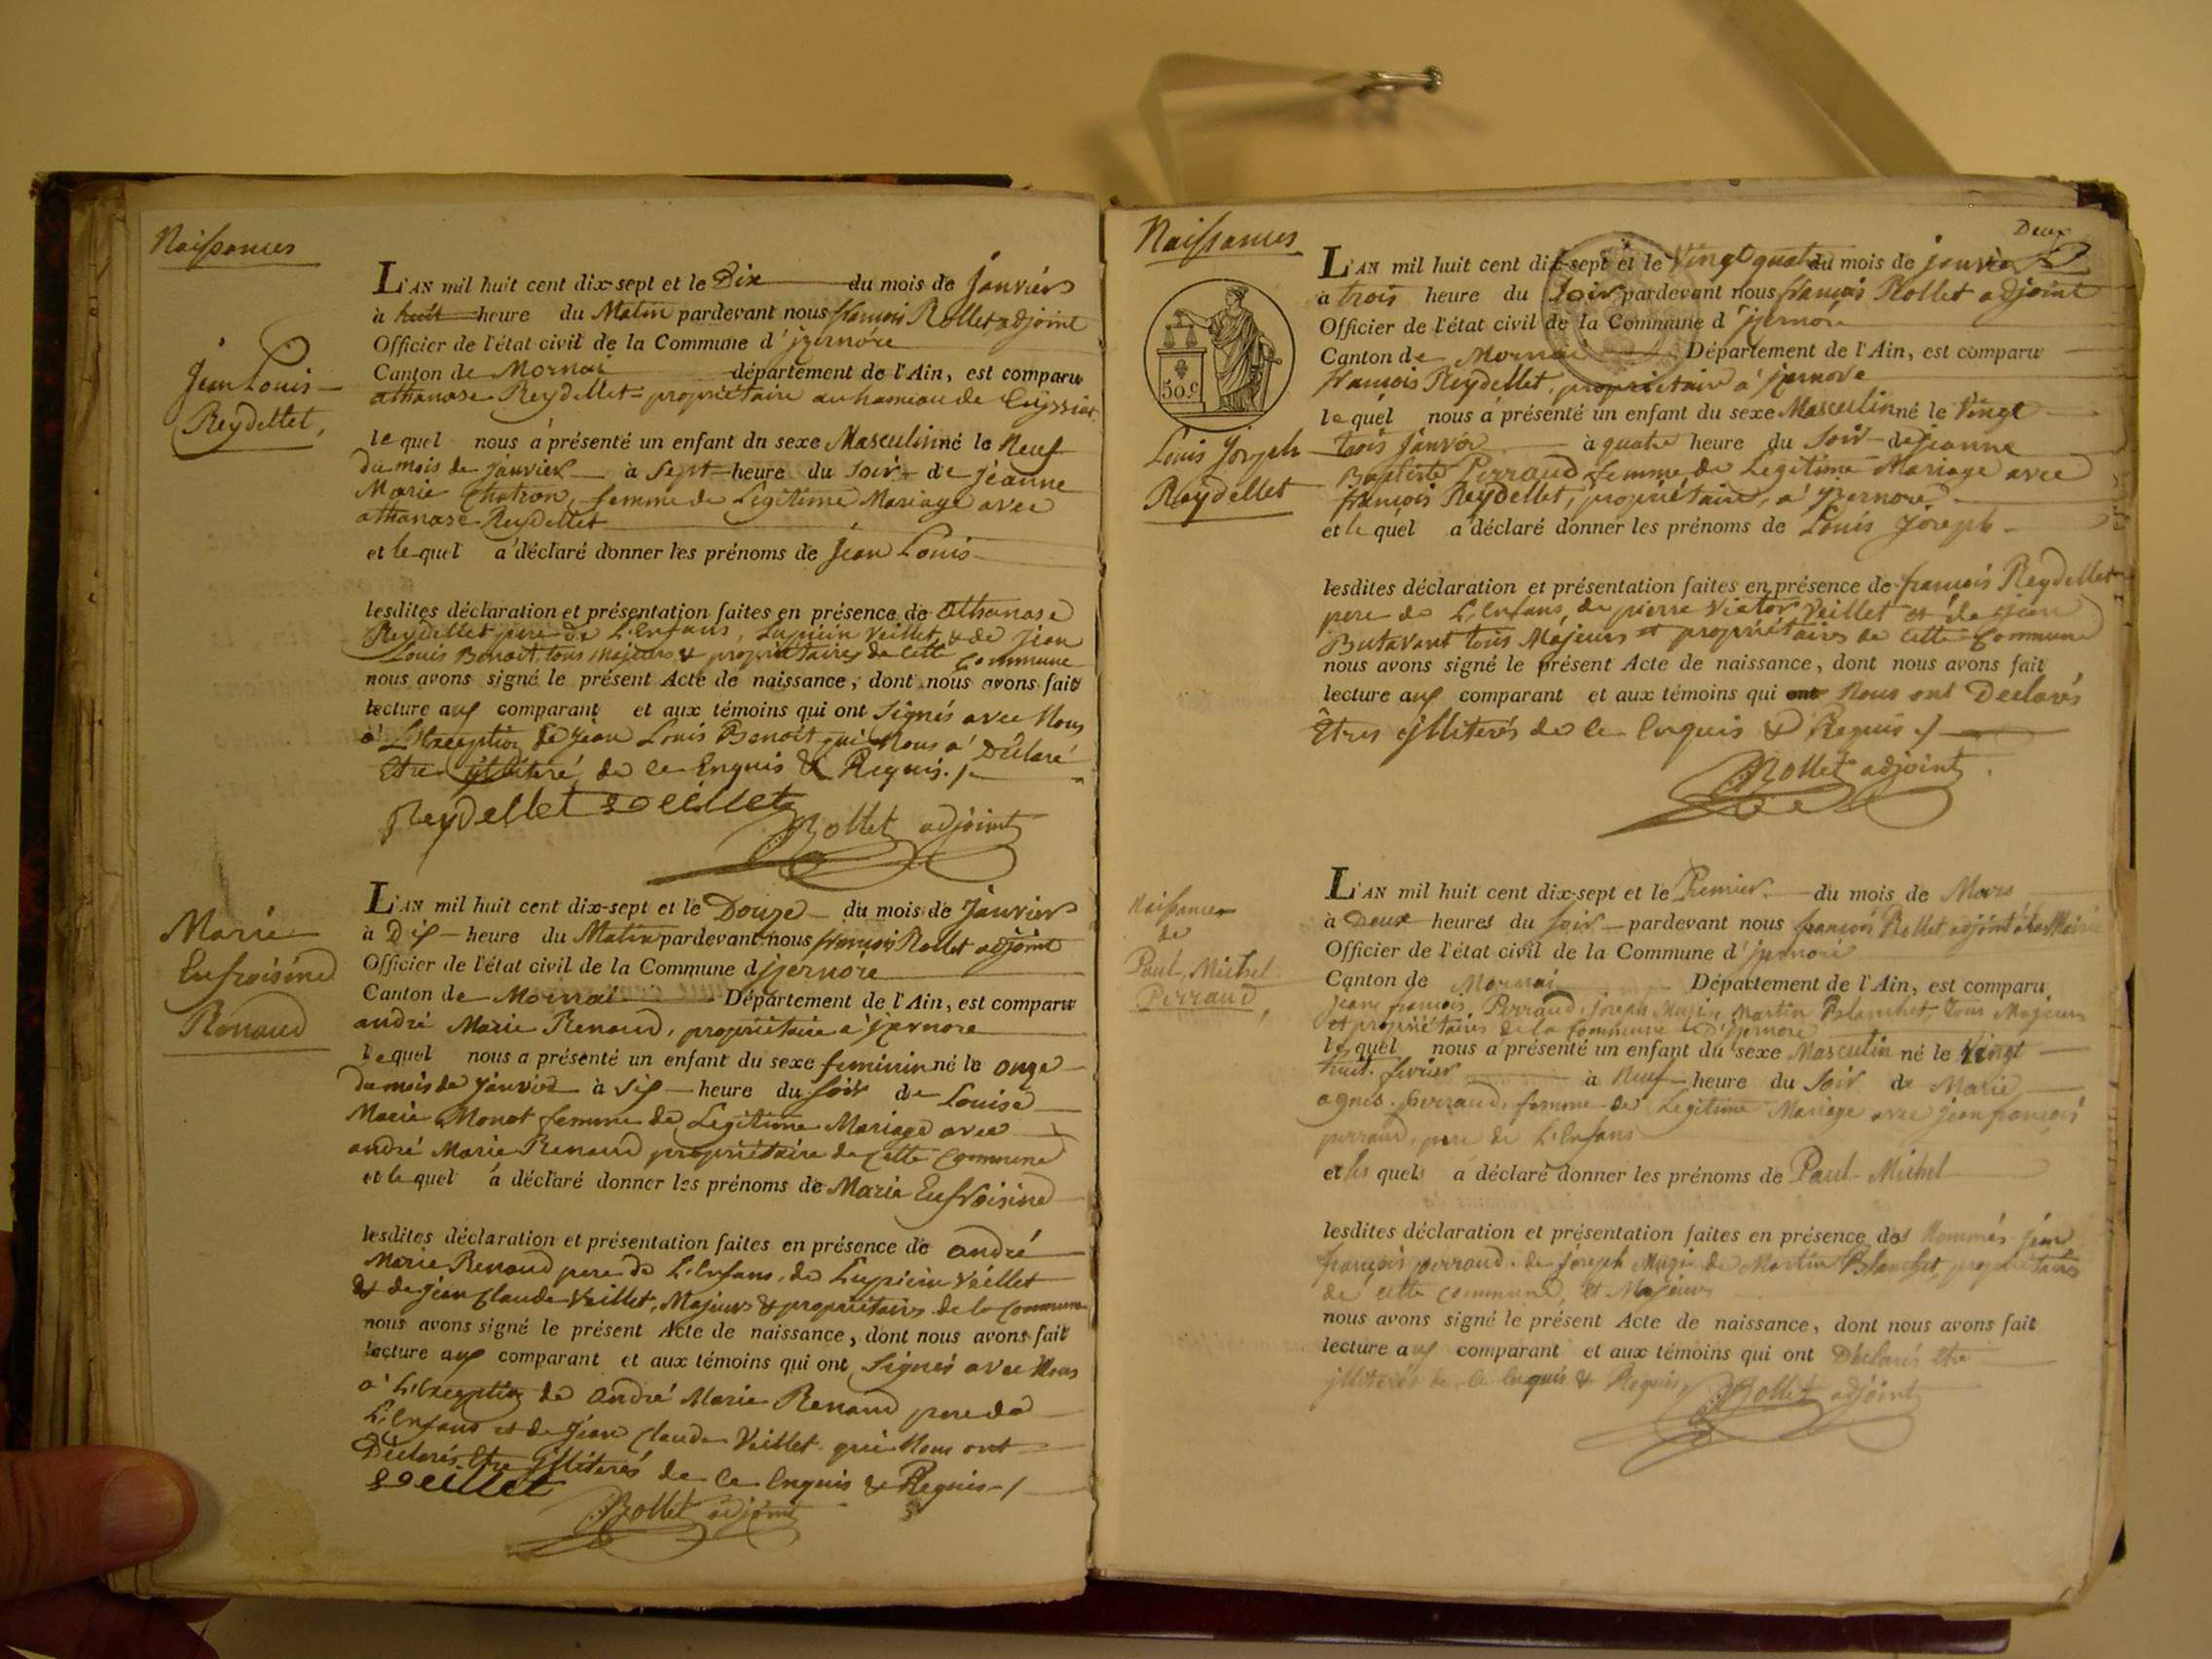 Naissances
Jean Louis
Reydellet,
L'AN mil huit cent dix-sept et le Dix du mois de janviers
à huit heure du Matin pardevant nous françois Rollet adjoint
Officier de l'état civil de la Commune d'jzernore
Canton de Mornai département de l'Ain, est comparu
athanase Reydellet propriétaire au hameau de
lequel nous a présenté un enfant du sexe Masculin né le Neuf
du mois de janvier à sept heure du soir de jéanne
Marie Chatron, femme de Légitime Mariage avec
athanase Reydellet
et le quel a déclaré donner les prénoms de jean Louis
lesdites déclaration et présentation faites en présence de athanase
Reydellet pere de L'Enfans, Lupicin Veillet, & de jean
Louis Benoit, tous Majeurs & propriétaires de Cette Commune
nous avons signé le présent Acte de naissance, dont nous avons fait
lecture aux comparant et aux témoins qui ont signés avec Nous
a L'Exception de jean Louis Benoit qui Nous a Déclaré
Etre jlliteré de ce Enquis & Requis ./.
Reydellet Veillet
Rollet adjoint
Marie
Eufroisine
Renaud
L'AN mil huit cent dix-sept et le Douze du mois de Janviers
à Dix heure du Matin pardevant nous françois Rollet adjoint
Officier de l'état civil de la Commune d jzernore
Canton de Mornai Département de l'Ain, est comparu
andré Marie Renaud, propriétaire a jzernore
lequel nous a présenté un enfant du sexe feminin né le onze
du mois de janvier à six heure du soir de Louise
Marie Monet femme de Legitime Mariage avec
andré Marie Renaud propriétaire de Cette Commune
et le quel a déclaré donner les prénoms de Marie Eufroisine
lesdites déclaration et présentation faites en présence de andré
Marie Renaud pere de L'Enfans, de Lupicin Veillet
& de jean Claude Veillet, Majeurs & propriétaires de la Commune
nous avons signé le présent Acte de naissance, dont nous avons fait
lecture aux comparant et aux témoins qui ont Signés avec Nous
a L'Exception de andré Marie Renaud pere de
L'Enfans et de jean Claude Veillet qui Nous ont
Déclarés Etre jlliterés de ce Enquis & Requis ./.
Veillet
Rollet adjoint
Naissances
Deux
50 c
Louis Joseph
Reydellet
L'AN mil huit cent dix-sept et le Vingt quatre du mois de janvier
à trois heure du soir pardevant nous françois Rollet adjoint
Officier de l'état civil de la Commune d'jzernore
Canton de Mornai Département de l'Ain, est comparu
françois Reydellet, propriétaire a jzernore
lequel nous a présenté un enfant du sexe Masculin né le Vingt
trois janvier à quatre heure du soir de jeanne
Baptiste Perraud femme de Legitime Mariage avec
françois Reydellet, propriétaire, a jzernore
et le quel a déclaré donner les prénoms de Louis Joseph
lesdites déclaration et présentation faites en présence de françois Reydellet
pere de L'Enfans, de pierre Viator Veillet et de jean
Butavant tous Majeurs et propriétaires de Cette Commune
nous avons signé le présent Acte de naissance, dont nous avons fait
lecture aux comparant et aux témoins qui ont Nous ont Déclarés
Etres jlliterés de ce Enquis & Requis ./.
Rollet adjoint
Naissance
de
Paul Michel
Perraud,
L'AN mil huit cent dix-sept et le Premier du mois de Mars
à Deux heures du soir pardevant nous françois Rollet adjoint
Officier de l'état civil de la Commune d'jzernore
Canton de Mornai Département de l'Ain, est comparu
Jean françois Perraud, joseph Martin Blanchet, tous Majeurs
et propriétaires de la Commune d'jzernore
lequel nous a présenté un enfant du sexe Masculin né le Vingt
huit fevrier à Neuf heure du soir de Marie
agnes perraud, femme de Legitime Mariage avec jean françois
perraud, pere de L'Enfans
et les quels a déclaré donner les prénoms de Paul Michel
lesdites déclaration et présentation faites en présence des Nommés jean
françois perraud de joseph de Martin Blanchet, propriétaires
de Cette Commune, et Majeurs
nous avons signé le présent Acte de naissance, dont nous avons fait
lecture aux comparant et aux témoins qui ont Déclarés Etre
jlliterés de Ce Enquis & Requis,
Rollet adjoint